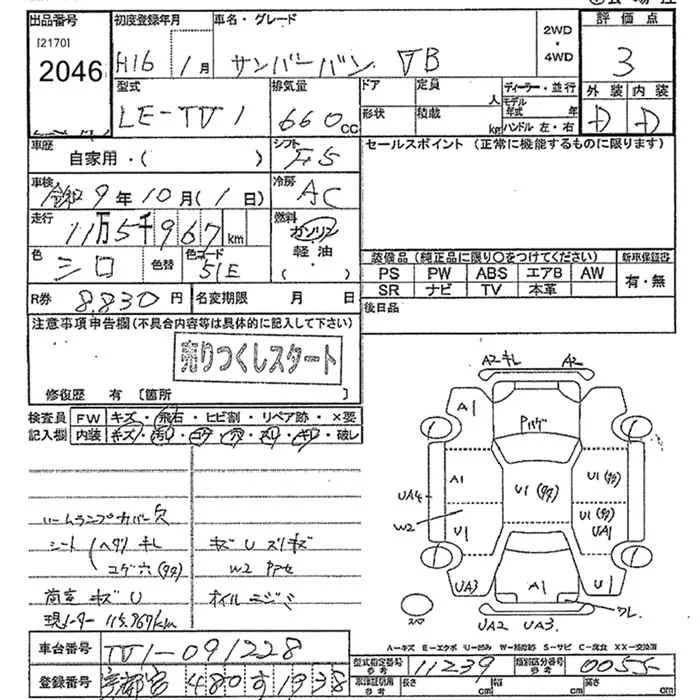 出品番号
[2170]
2046
初度登録年月
H16 1月
車名・グレード
サンバーバン TB
2WD
・
4WD
評価点
3
外装 内装
D D
型式
LE-TV1
排気量
660cc
ドア
定員
人
形状
積載
kg
ディーラー・並行
モデル年式 年
ハンドル 左・右
車歴
自家用・( )
シフト
F5
セールスポイント (正常に機能するものに限ります)
車検
令和9年10月(1日)
冷房
AC
走行
11万5千967km
燃料
ガソリン
軽油
( ・ )
色
シロ
色替
色コード
51E
装備品(純正品に限り○をつけてください)
新車保証書
PS PW ABS エアB AW
SR ナビ TV 本革
有・無
R券 8,830円
名変期限 月 日
後日品
注意事項申告欄(不具合内容等は具体的に記入して下さい)
売りつくしスタート
修復歴 有 [箇所 ]
検査員
記入欄
FW キズ・飛石・ヒビ割・リペア跡・×要
内装 キズ・汚れ・コゲ・穴・スレ・キレ・破レ
ルームランプカバー欠
シート ヘタリ キレ
コゲ穴(タタ)
キズ U スリキズ
W2
荷室 キズ U
オイルニジミ
現メーター 115,967km
A2キレ A2
A1
Pハゲ
A1
U1(タタ)
U1(タタ)
UA4
W2
U1
U1(タタ)
UA1
UA3
A1
U1
ワレ
UA2 UA3
スペア
A-キズ E-エクボ U-凹み W-補修跡 S-サビ C-腐食 XX-交換済
車台番号
TV1-091228
型式指定番号
参考
11239
類別区分番号
参考
0055
登録番号
宇都宮480す1938
車検証引用
参考
長さ cm
幅 cm
高さ cm